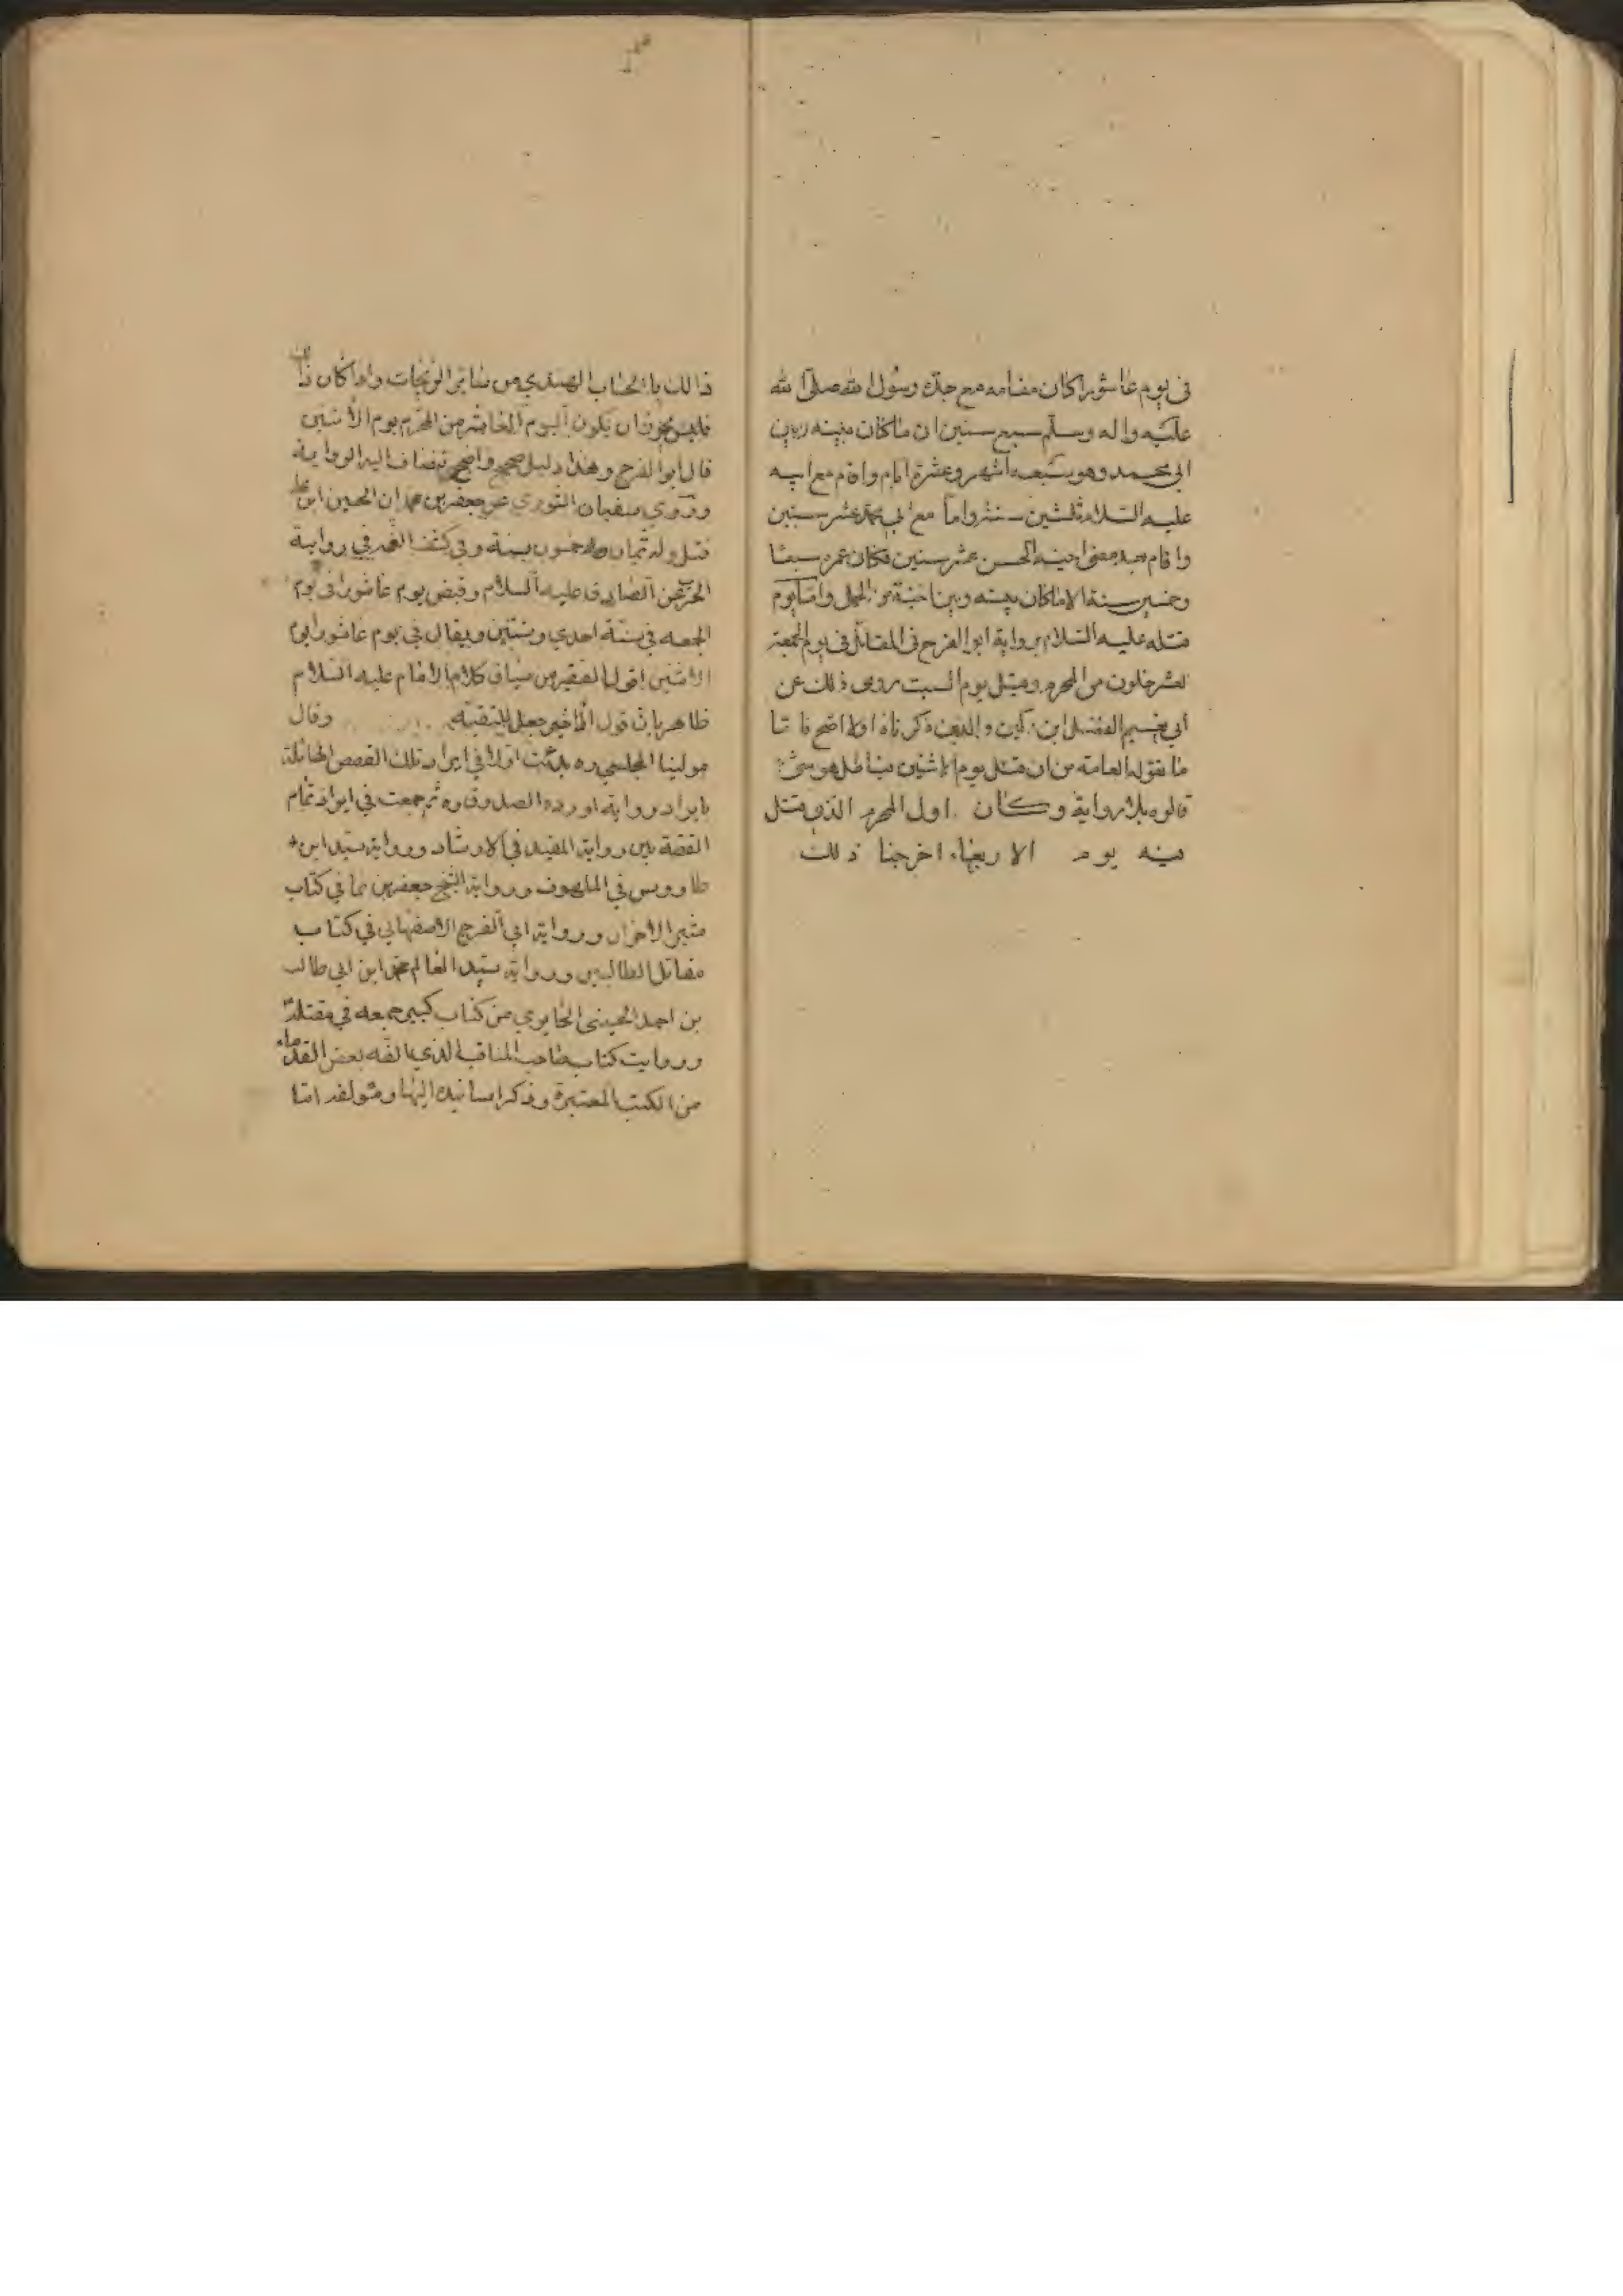 في يوم عاشورا كان مقامه مع جده رسول الله صلى الله
عليه واله وسلم سبع سنين الا ما كان بينه وبين
ابي محمد وهو سبعه اشهر وعشرة ايام واقام مع ابيه
عليه السلام ثلثين سنة واما مع ابي محمد عشر سنين
واقام بعد مضى اخيه الحسن عشر سنين فكان عمره سبعا
وخمسين سنة الا ما كان بينه وبين اخيه من الحمل واما يوم
قتله عليه السلام برواية ابو الفرج في المقاتل في يوم الجمعة
لعشر خلون من المحرم وقيل يوم السبت روى ذلك عن
ابي نعيم الفضل ابن دكين والذي ذكرناه اولا اصح فاما
ما نقوله العامة من ان قتل يوم الاثنين فباطل هو شئ
قالوه بلا رواية وكان اول المحرم الذي قتل
فيه يوم الاربعاء اخرجنا ذلك
ذالك بالحساب الهندي من سائر الزيجات واذا كان
فليس يجوز ان يكون اليوم العاشر من المحرم يوم الاثنين
قال ابو الفرج وهذا دليل صحيح واضح تضاف اليه الرواية
وروي سفيان الثوري عن جعفر بن محمد ان الحسين ابن علي
قتل وله ثمان وخمسون سنة وفي كشف الغمه في رواية
الحرب عن الصادق عليه السلام وقبض يوم عاشورا في يوم
الجمعه في سنة احدي وستين ويقال في يوم عاشورا يوم
الاثنين اقول الفقير من سياق كلام الامام عليه السلام
ظاهر بان قول الاخير جعل للتقيه وقال
مولينا المجلسي ره بدئت اولا في ايراد تلك القصص الهائلة
بايراد رواية اورده الصدوق ره ثم جمعت في ايراد تمام
القصة بين رواية المفيد في الارشاد ورواية سيد ابن
طاووس في الملهوف ورواية الشيخ جعفر بن نما في كتاب
مثير الاحزان ورواية ابي الفرج الاصفهاني في كتاب
مقاتل الطالبين ورواية سيد العالم محمد ابن ابي طالب
بن احمد الحسيني الحايري من كتاب كبير جمعه في مقتله
وروايت كتاب صاحب المناقب الذي الفه بعض القدماء
من الكتب المعتبرة وذكر اسانيده اليها ومؤلفه اما